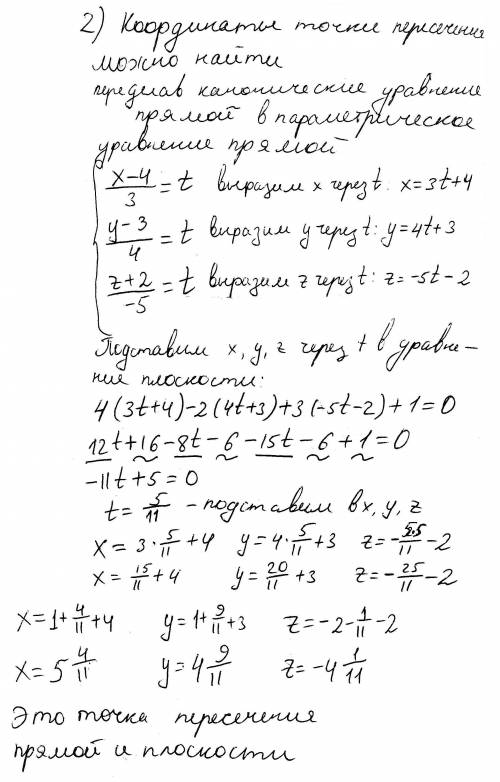 2) Координаты точки пересечения
можно найти
переделав канонические уравнение
прямой в параметрическое
уравнение прямой
x-4/3 = t выразим x через t: x=3t+4
y-3/4 = t выразим y через t: y=4t+3
z+2/-5 = t выразим z через t: z=-5t-2
Подставим x, y, z через t в уравне-
ние плоскости:
4(3t+4)-2(4t+3)+3(-5t-2)+1=0
12t+16-8t-6-15t-6+1=0
-11t+5=0
t=5/11 - подставим в x, y, z
x=3·5/11+4 y=4·5/11+3 z=-5·5/11-2
x=15/11+4 y=20/11+3 z=-25/11-2
x=1+4/11+4 y=1+9/11+3 z=-2-1/11-2
x=5 4/11 y=4 9/11 z=-4 1/11
Это точка пересечения
прямой и плоскости